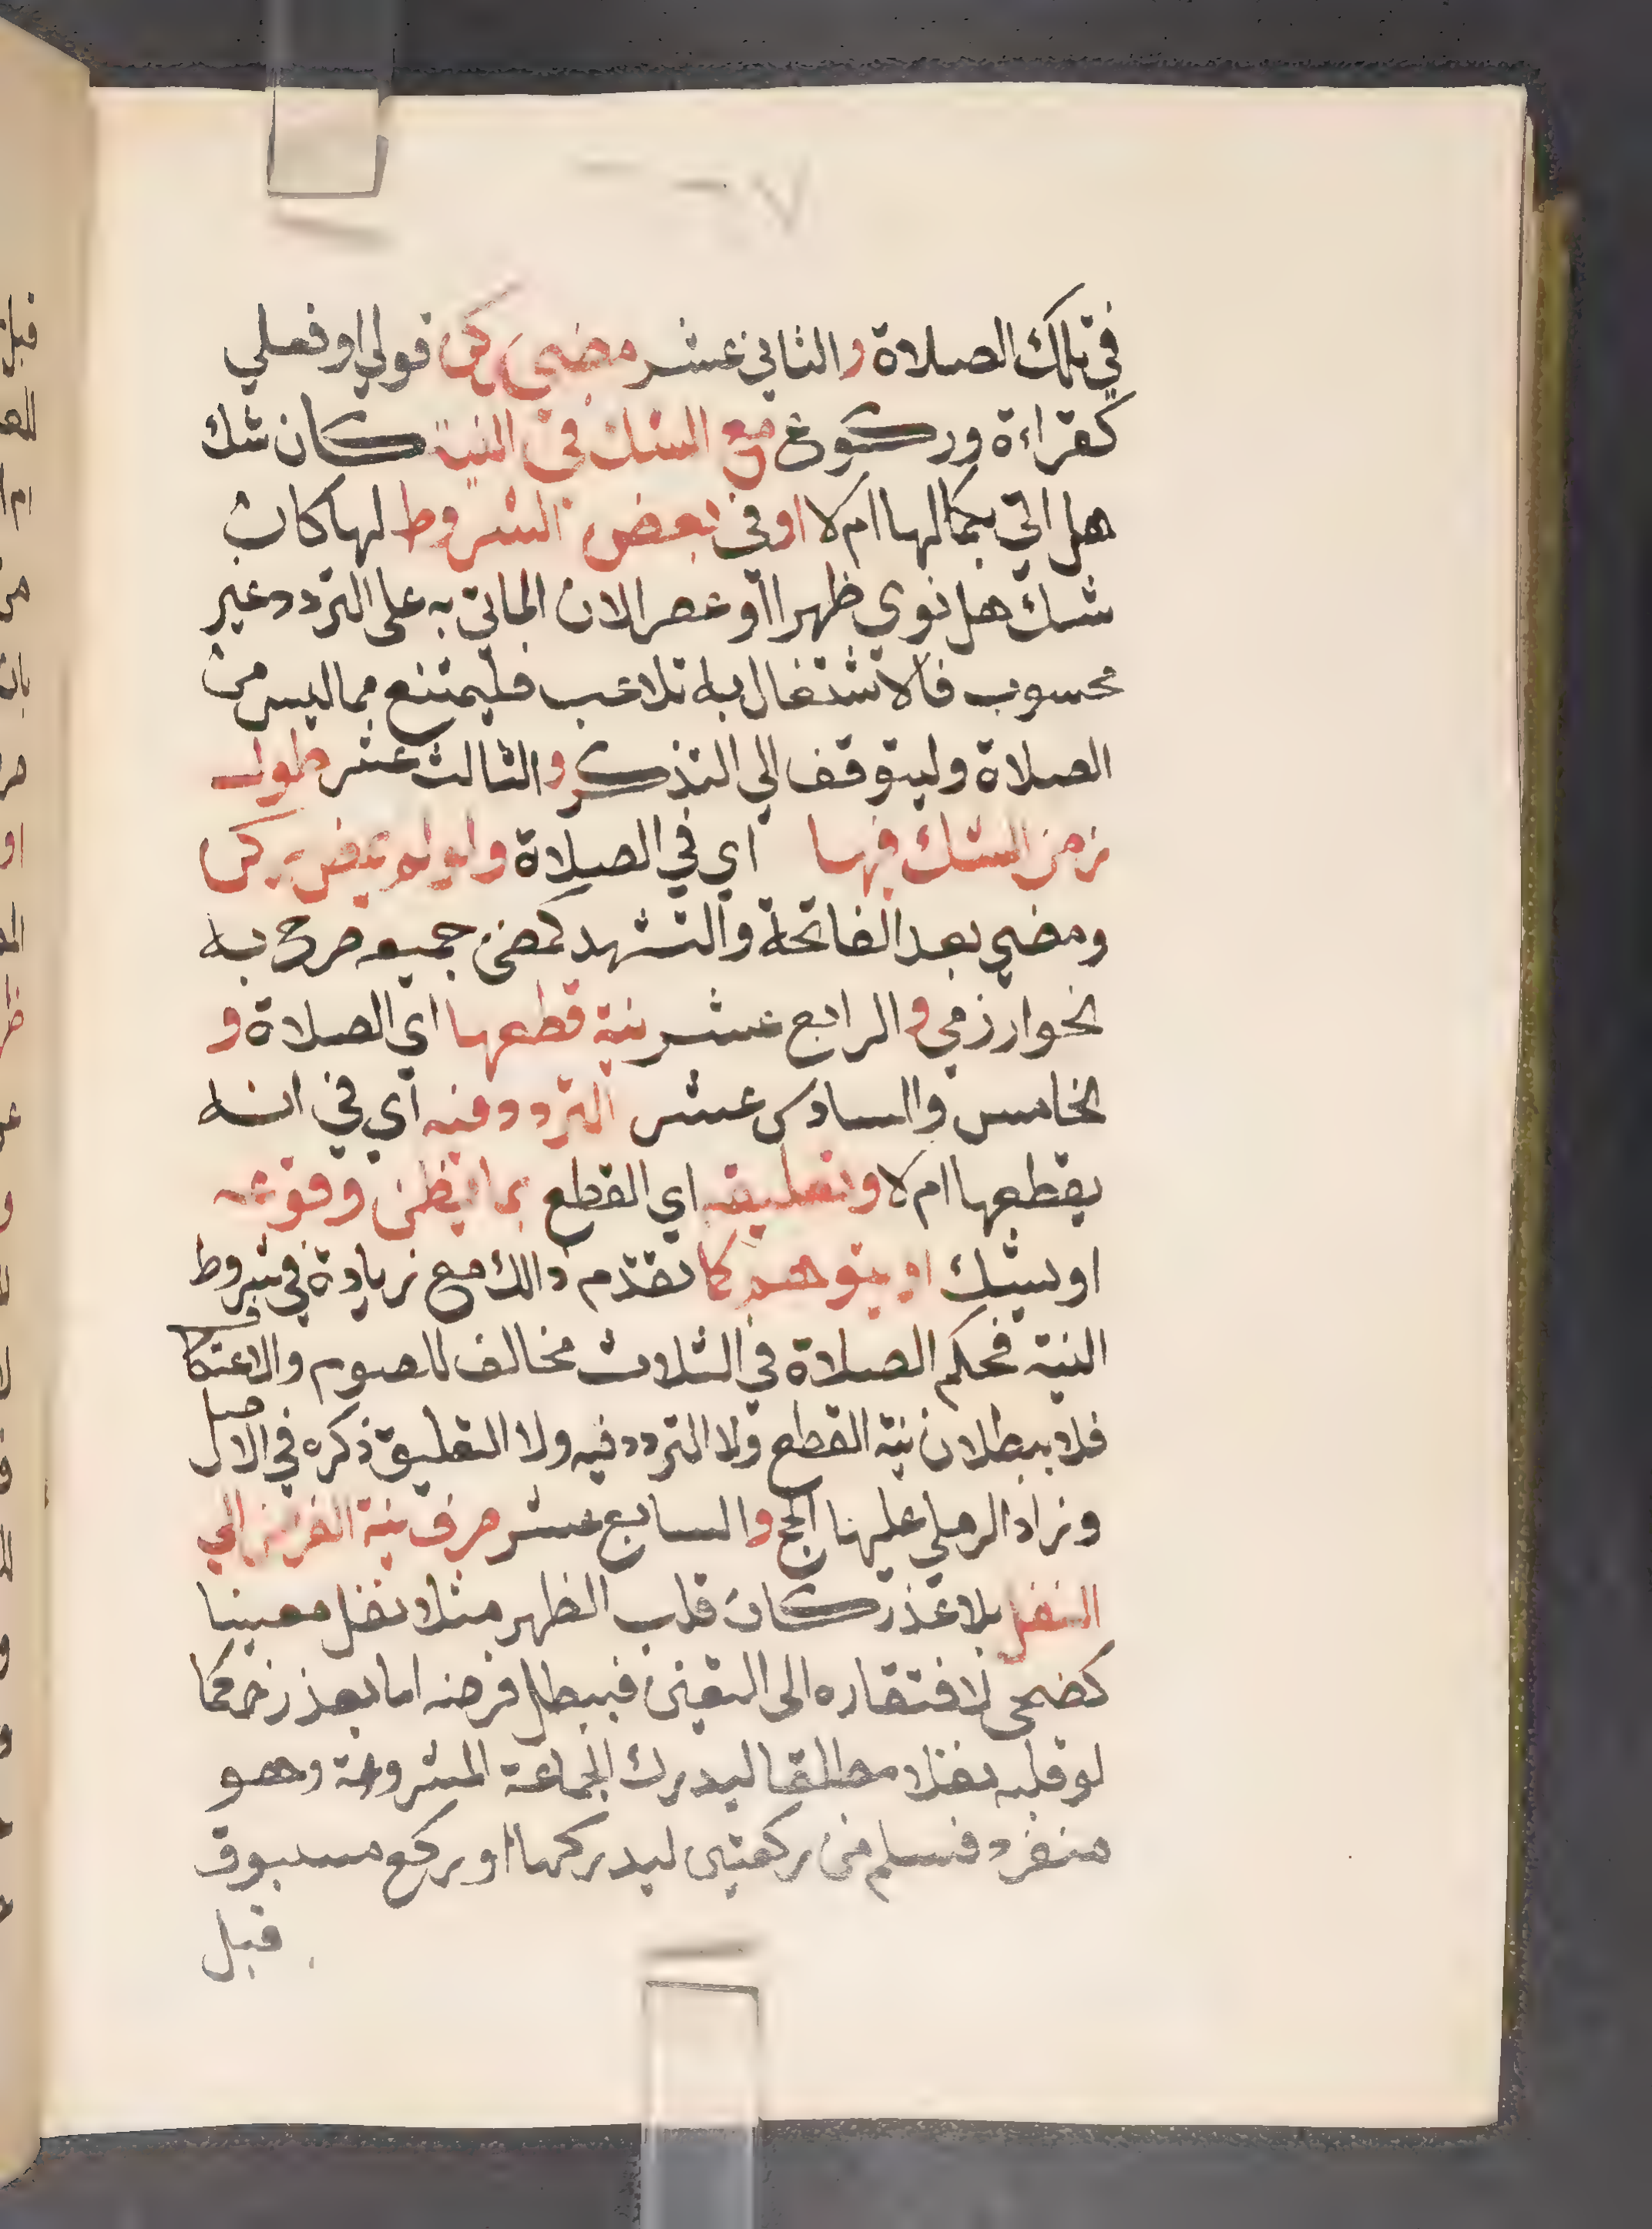 في تلك الصلاة والثاني عشر مضي ركن قولي او فعلي
كقراءة وركوع مع الشك في النية كان شك
هل اتي بكمالها ام لا او في بعض الشروط لها كان
شك هل نوي ظهرا او عصرا لان الماتي به على التردد غير
محسوب فالاشتغال به تلاعب فليمتنع مما ليس من
الصلاة وليتوقف الي التذكر والثالث عشر طول
زمن الشك فيها اي في الصلاة ولو لم يمض ركن
ومضي بعد الفاتحة والتشهد كمضي جميعه صرح به
الخوارزمي والرابع عشر نية قطعها اي الصلاة و
الخامس والسادس عشر التردد فيه اي في انه
يقطعها ام لا وتعليقه اي القطع بما يظن وقوعه
او يشك او يتوهم كما تقدم ذالك مع زيادة في شروط
النية فحكم الصلاة في الثلاث مخالف للصوم والاعتكاف
فلا يبطلان نية القطع ولا التردد فيه ولا التعليق ذكره في الاصل
وزاد الرملي عليها الحج والسابع عشر صرف نية الفرض الي
النفل بلا عذر كان قلب الظهر مثلا نفل معينا
كضحى لافتقاره الى التعين فيبطل فرضه اما بعذر كما
لو قلبه نفلا مطلقا ليدرك الجماعة المشروعة وهو
منفرد فسلم من ركعتين ليدركها او ركع مسبوق
قبل